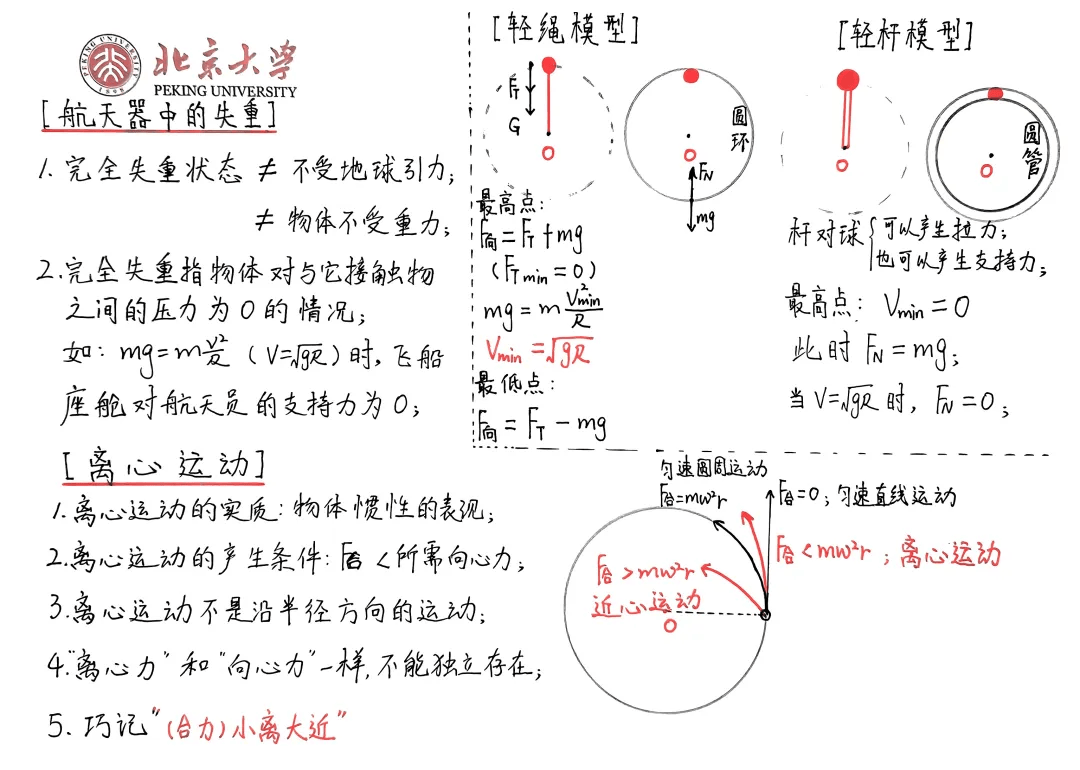 PEKING UNIVERSITY
1898
北京大学
PEKING UNIVERSITY
[航天器中的失重]
1. 完全失重状态 ≠ 不受地球引力;
≠ 物体不受重力;
2. 完全失重指物体对与它接触物
之间的压力为0的情况;
如: mg=m v²/R (V=√gR)时, 飞船
座舱对航天员的支持力为0;
[轻绳模型]
F_T
G
O
圆环
O
F_N
mg
最高点:
F向=F_T+mg
(F_Tmin=0)
mg=m V²min/R
Vmin=√gR
最低点:
F向=F_T-mg
[轻杆模型]
O
圆管
O
杆对球{可以产生拉力;
也可以产生支持力;
最高点: Vmin=0
此时 F_N=mg;
当V=√gR时, F_N=0;
[离心运动]
1.离心运动的实质: 物体惯性的表现;
2.离心运动的产生条件: F合<所需向心力;
3.离心运动不是沿半径方向的运动;
4."离心力"和"向心力"一样,不能独立存在;
5. 巧记"(合力)小离大近"
匀速圆周运动
F合=mω²r
F合=0; 匀速直线运动
F合<mω²r; 离心运动
F合>mω²r
近心运动
O